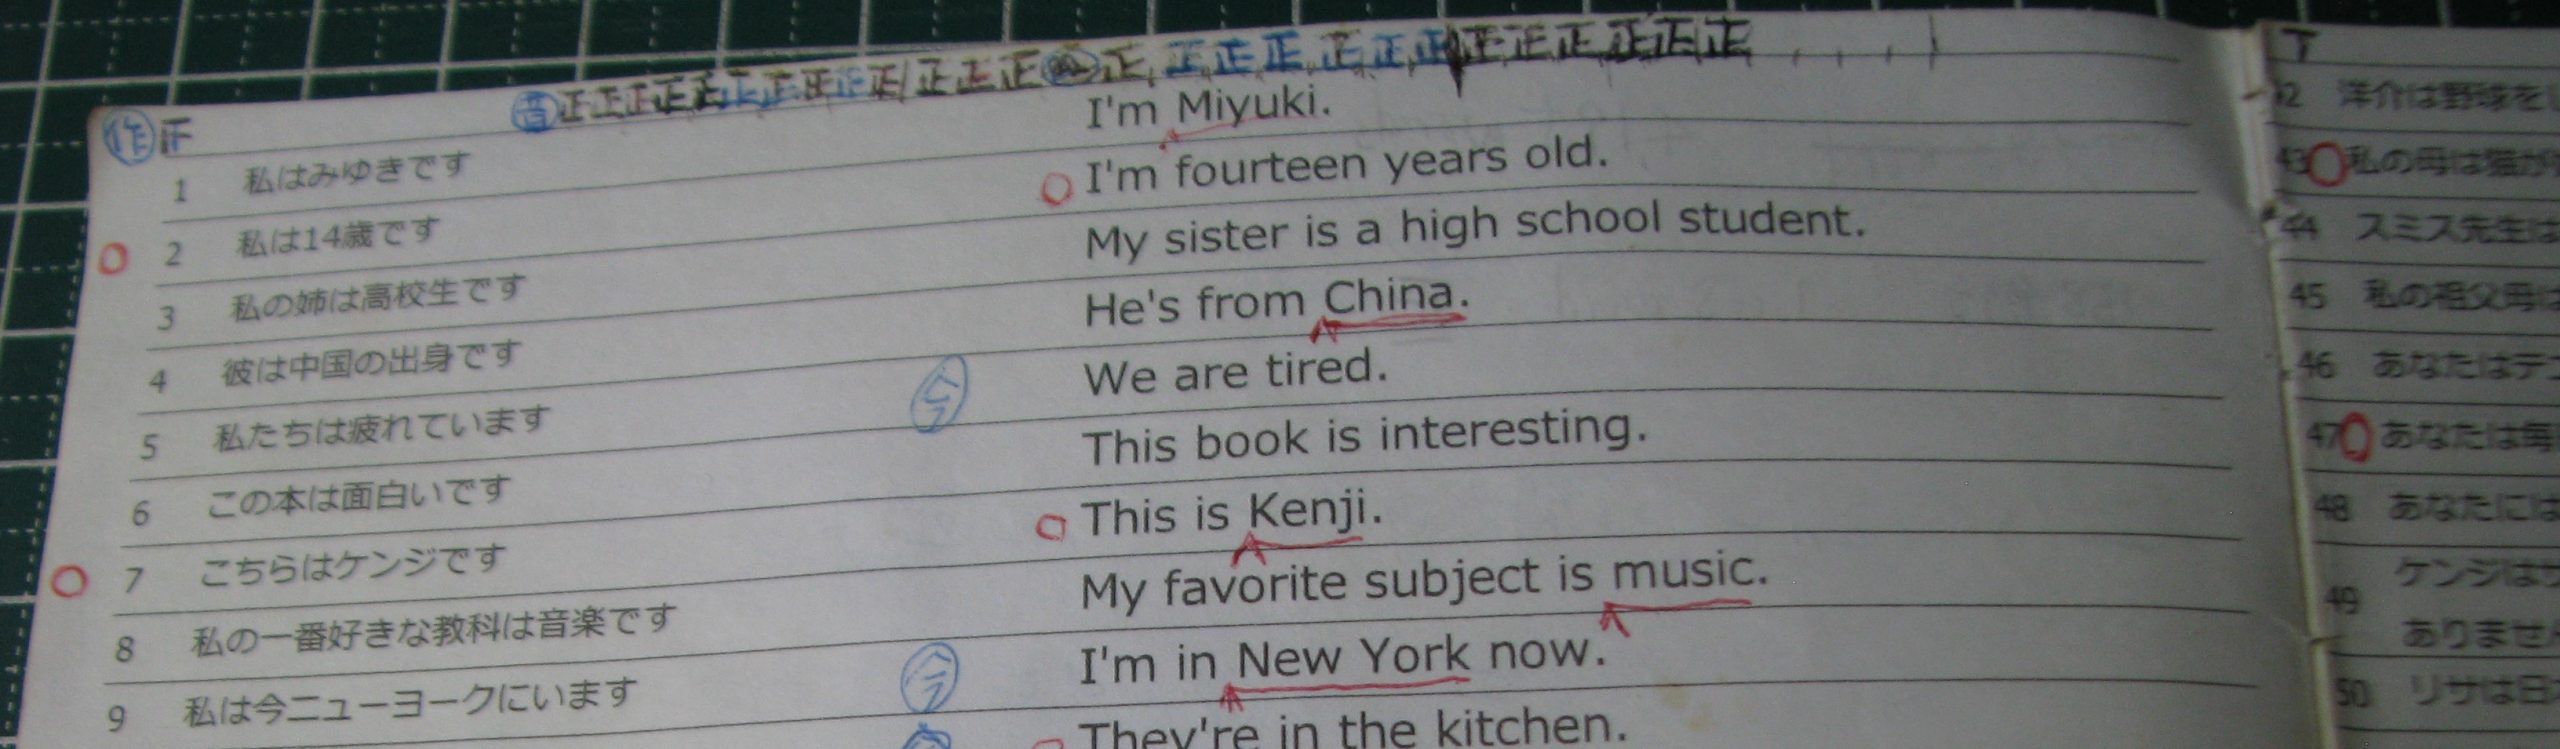 作 正
音 正正正正正正正正正正正正正 正 正正正正正正正正正正正正
1 私はみゆきです I'm Miyuki.
2 私は14歳です I'm fourteen years old.
3 私の姉は高校生です My sister is a high school student.
4 彼は中国の出身です He's from China.
5 私たちは疲れています We are tired.
6 この本は面白いです This book is interesting.
7 こちらはケンジです This is Kenji.
8 私の一番好きな教科は音楽です My favorite subject is music.
9 私は今ニューヨークにいます I'm in New York now.
They're in the kitchen.
洋介は野球を
43 私の母は猫が
44 スミス先生は
45 私の祖父母は
46 あなたはテ
47 あなたは毎
48 あなたには
49 ケンジは
ありません
50 リサは日